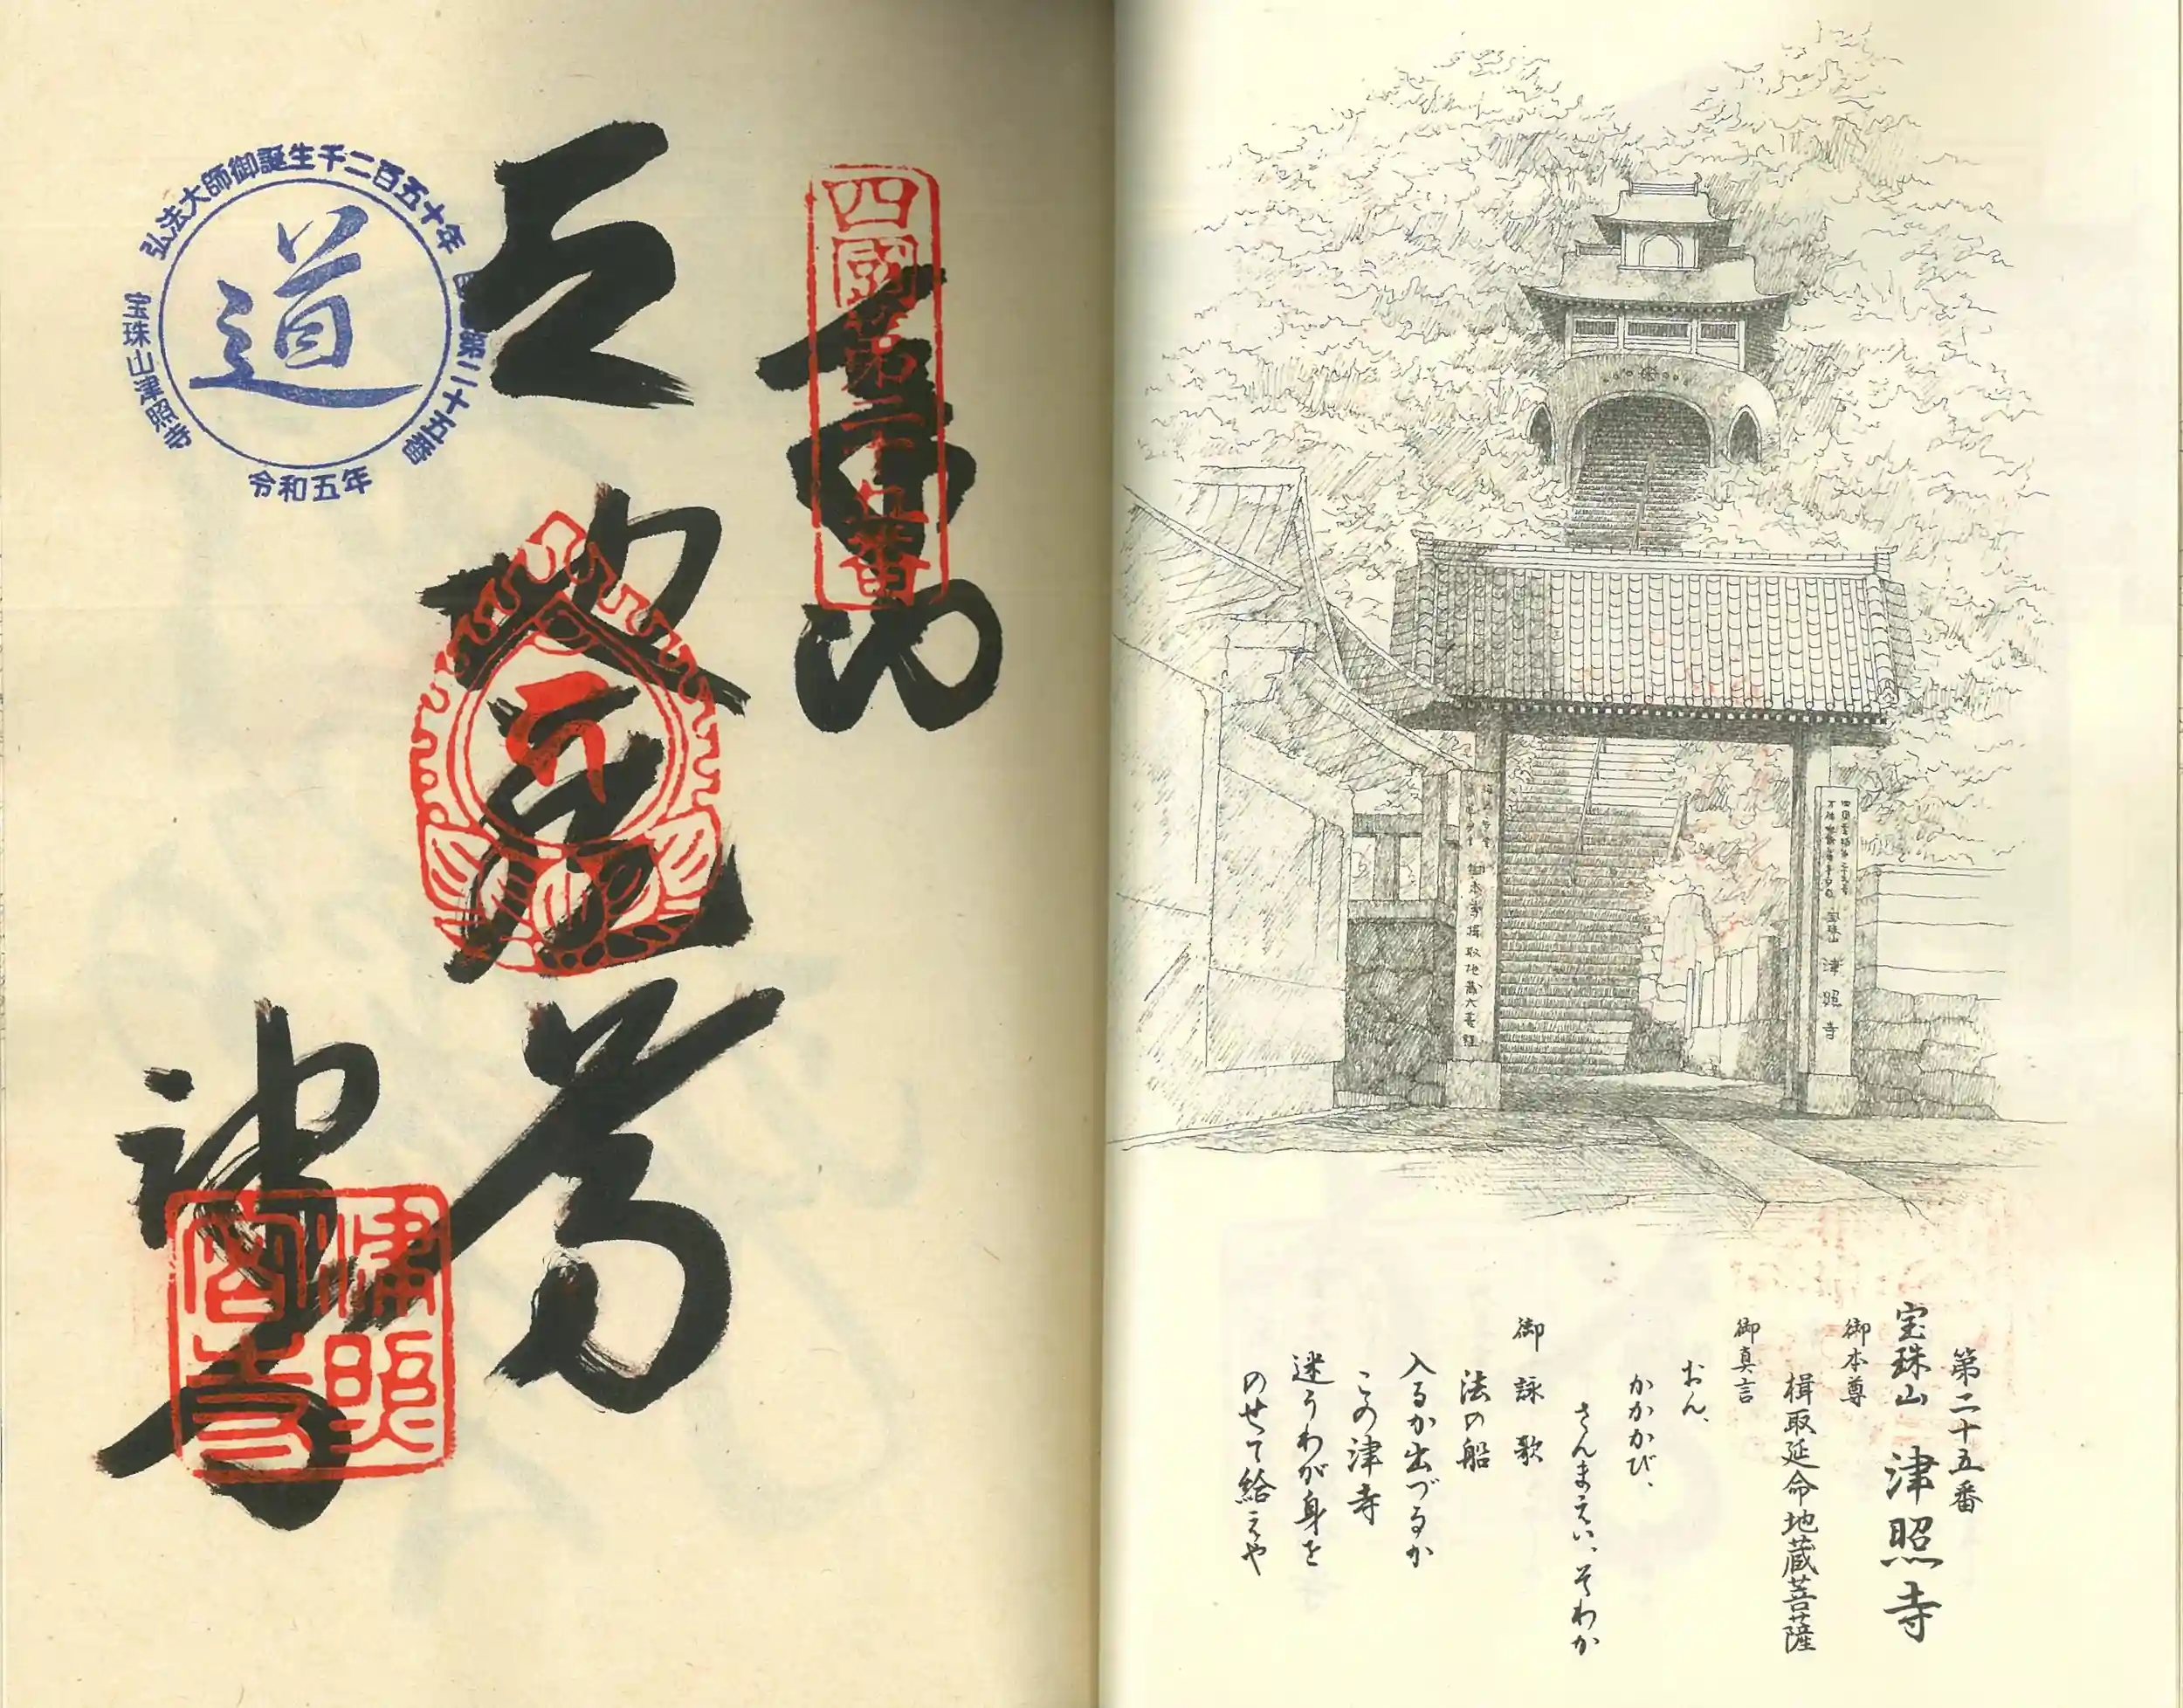 第二十五番
宝珠山 津照寺
御本尊
楫取延命地蔵菩薩
御真言
おん、
かかかび、
さんまえい、そわか
御詠歌
法の船
入るか出づるか
この津寺
迷うわが身を
のせて給えや
宝珠山 津照寺
楫取地蔵大菩薩
四國第二十五番
奉納
地蔵尊
津寺
津照密寺
弘法大師御誕生千二百五十年
第二十五番
令和五年
宝珠山津照寺
道